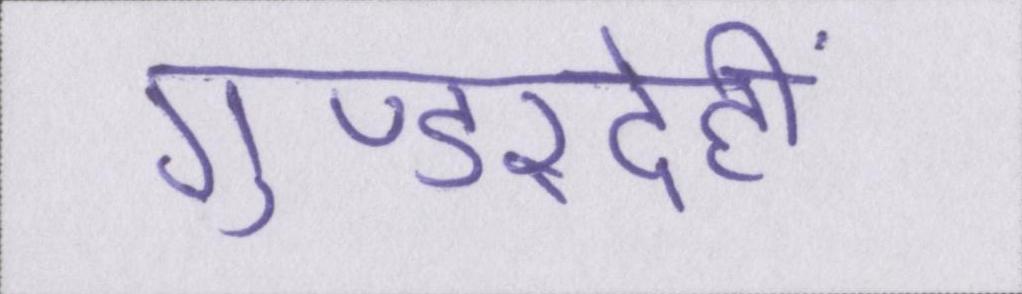 गुण्डरदेहीं